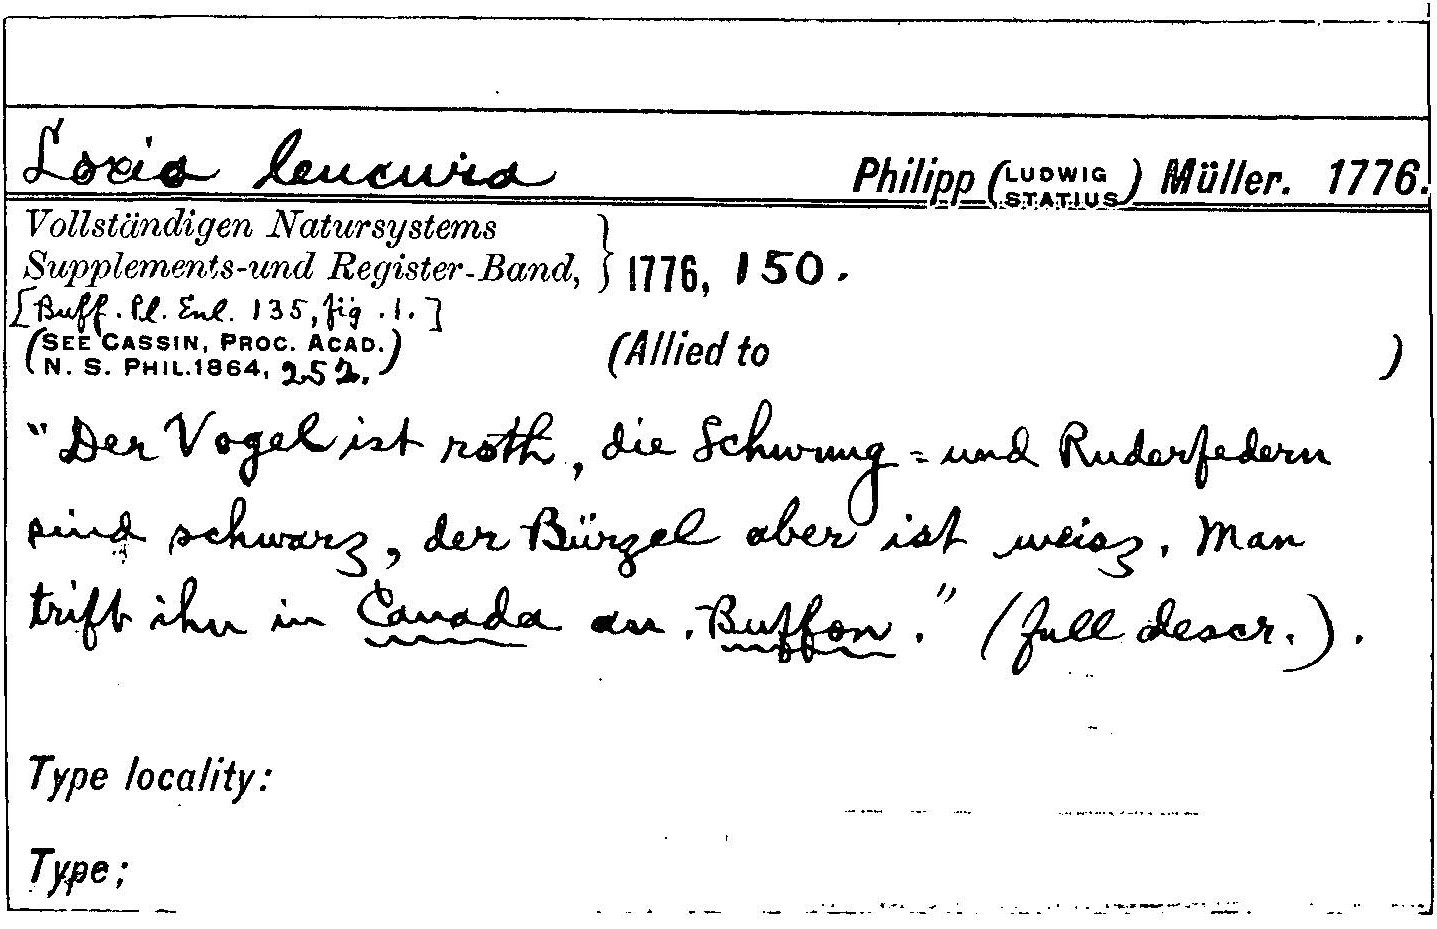 Loxia leucura Philipp (LUDWIG STATIUS) Müller. 1776.
Vollständigen Natursystems
Supplements-und Register-Band, } 1776, 150.
[Buff. Pl. Enl. 135, fig. 1.]
(SEE CASSIN, PROC. ACAD.
N. S. PHIL. 1864, 252.) (Allied to )
"Der Vogel ist roth, die Schwung=und Ruderfedern
sind schwarz, der Bürzel aber ist weisz. Man
trift ihn in Canada an. Buffon." (full descr.).
Type locality:
Type;